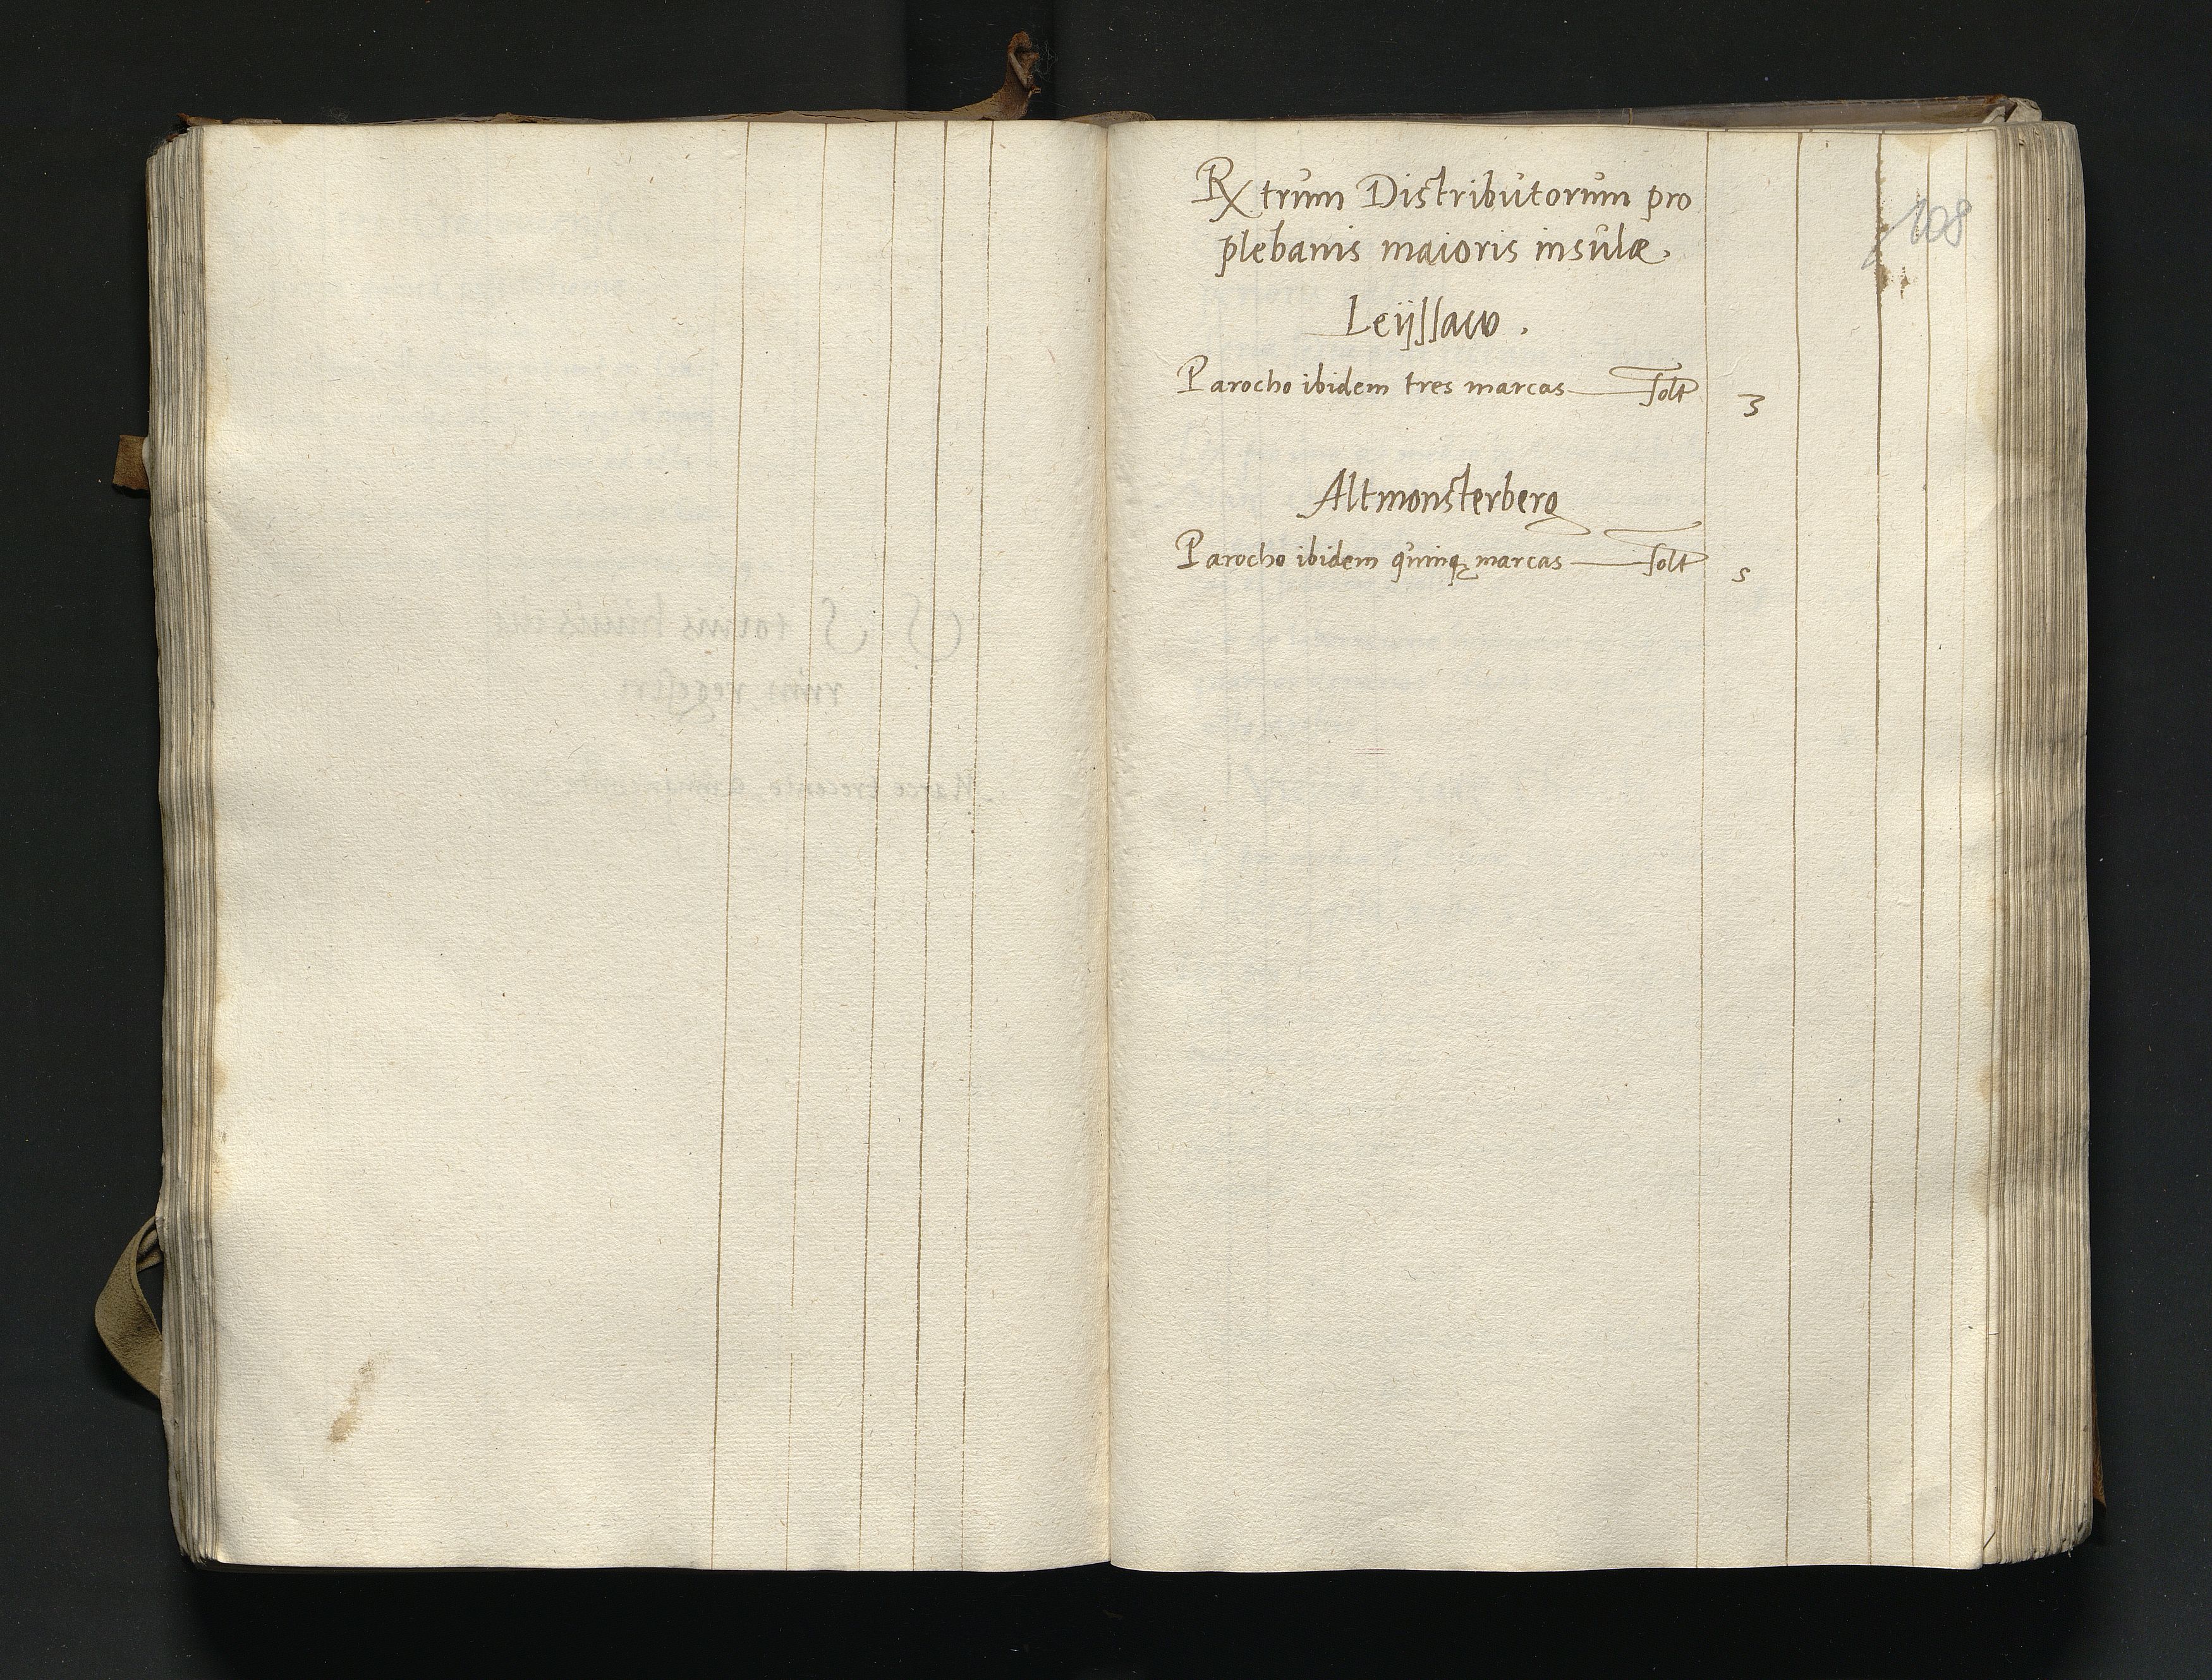 108
Rx trum Distributorum pro
plebanis maioris insulæ.
Leijssaw.
Parocho ibidem tres marcas solt 3
Altmonsterberg
Parocho ibidem quinqꝫ marcas solt 5